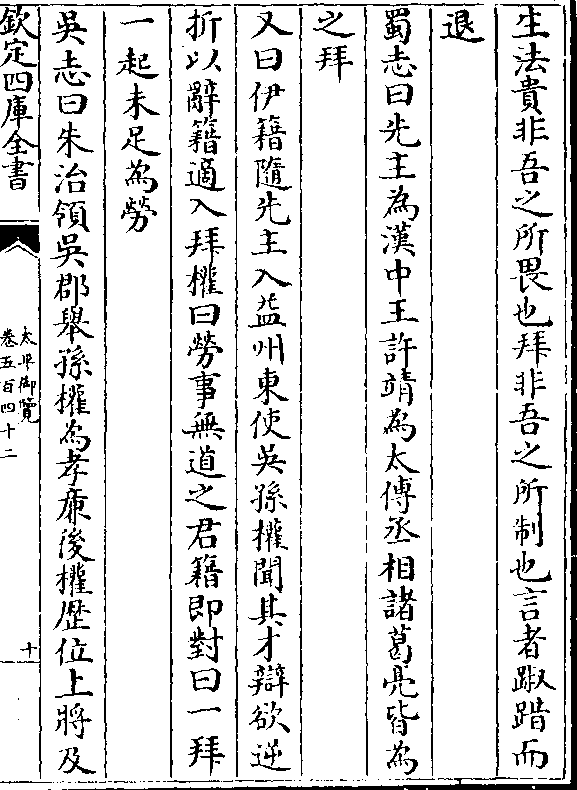 生法貴非吾之所畏也拜非吾之所制也言者踧踖而
退
蜀志曰先主為漢中王許靖為太傅丞相諸葛亮皆為
之拜
又曰伊籍隨先主入益州東使吳孫權聞其才辯欲逆
折以辭籍適入拜權曰勞事無道之君籍即對曰一拜
一起未足為勞
吳志曰朱治領吳郡舉孫權為孝廉後權歴位上將及
欽定四庫全書
太平御覽
卷五百四十二
十